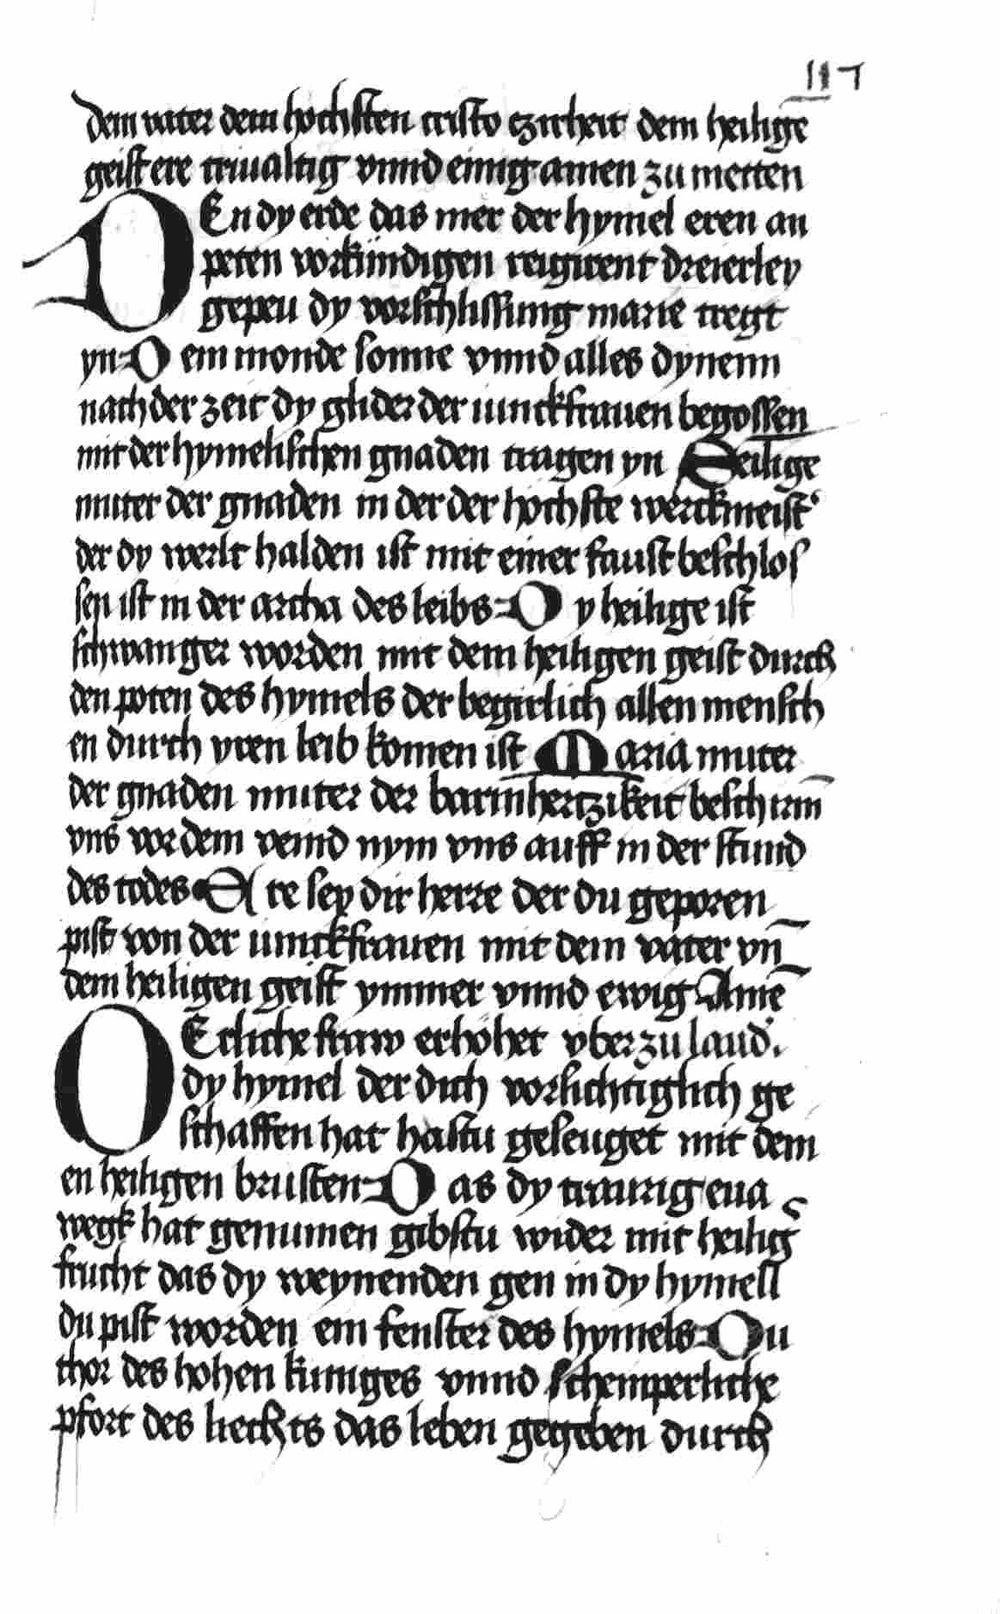 117
dem vater dem hochsten cristo czirheit dem heilige
geist ere trivaltig vnnd einig amen zu metten
DEn dy erde das mer der hymel eren an
peten vorkündigen reigirent dreierley
gepeu dy vorschlissung marie tregt
yn Dem monde sonne vnnd alles dynenn
nach der zeit dy glider der iunckfrauen begossen
mit der hymelischen gnaden tragen yn Selige
muter der gnaden in der der hochste werckmeist'
der dy werlt halden ist mit einer faust beschlos
sen ist in der archa des leibs Dy heilige ist
schwanger worden mit dem heiligen geist durch
den poten des hymels der begirlich allen mensch
en durch yren leib komen ist Maria muter
der gnaden muter der barmhertzikeit beschirm
vns vor dem veind nym vns auff in der stund
des todes Ere sey dir herre der du geporen
pist von der iunckfrauen mit dem vater vn̄
dem heiligen geist ymmer vnnd ewig Amē
OErliche fraw erhöhet vber zu land
dy hymel der dich vorsichtiglich ge
schaffen hat hastu geseuget mit dem
en heiligen brusten Das dy traurig eua
wegk hat genumen gibstu wider mit heilig
frucht das dy weynenden gen in dy hymell
du pist worden ein fenster des hymels Du
thor des hohen kuniges vnnd schemperliche
pfort des liechts das leben gegeben durch